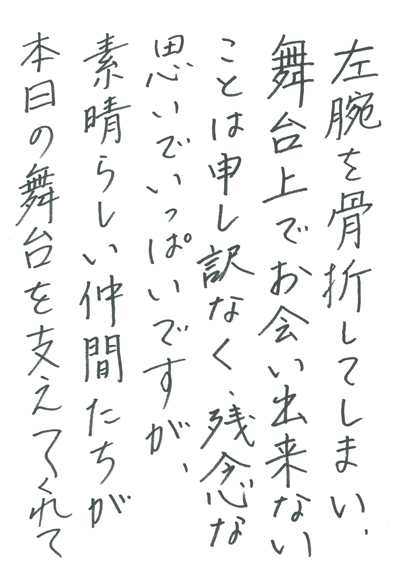 左腕を骨折してしまい、
舞台上でお会い出来ない
ことは申し訳なく、残念な
思いでいっぱいですが、
素晴らしい仲間たちが
本日の舞台を支えてくれて